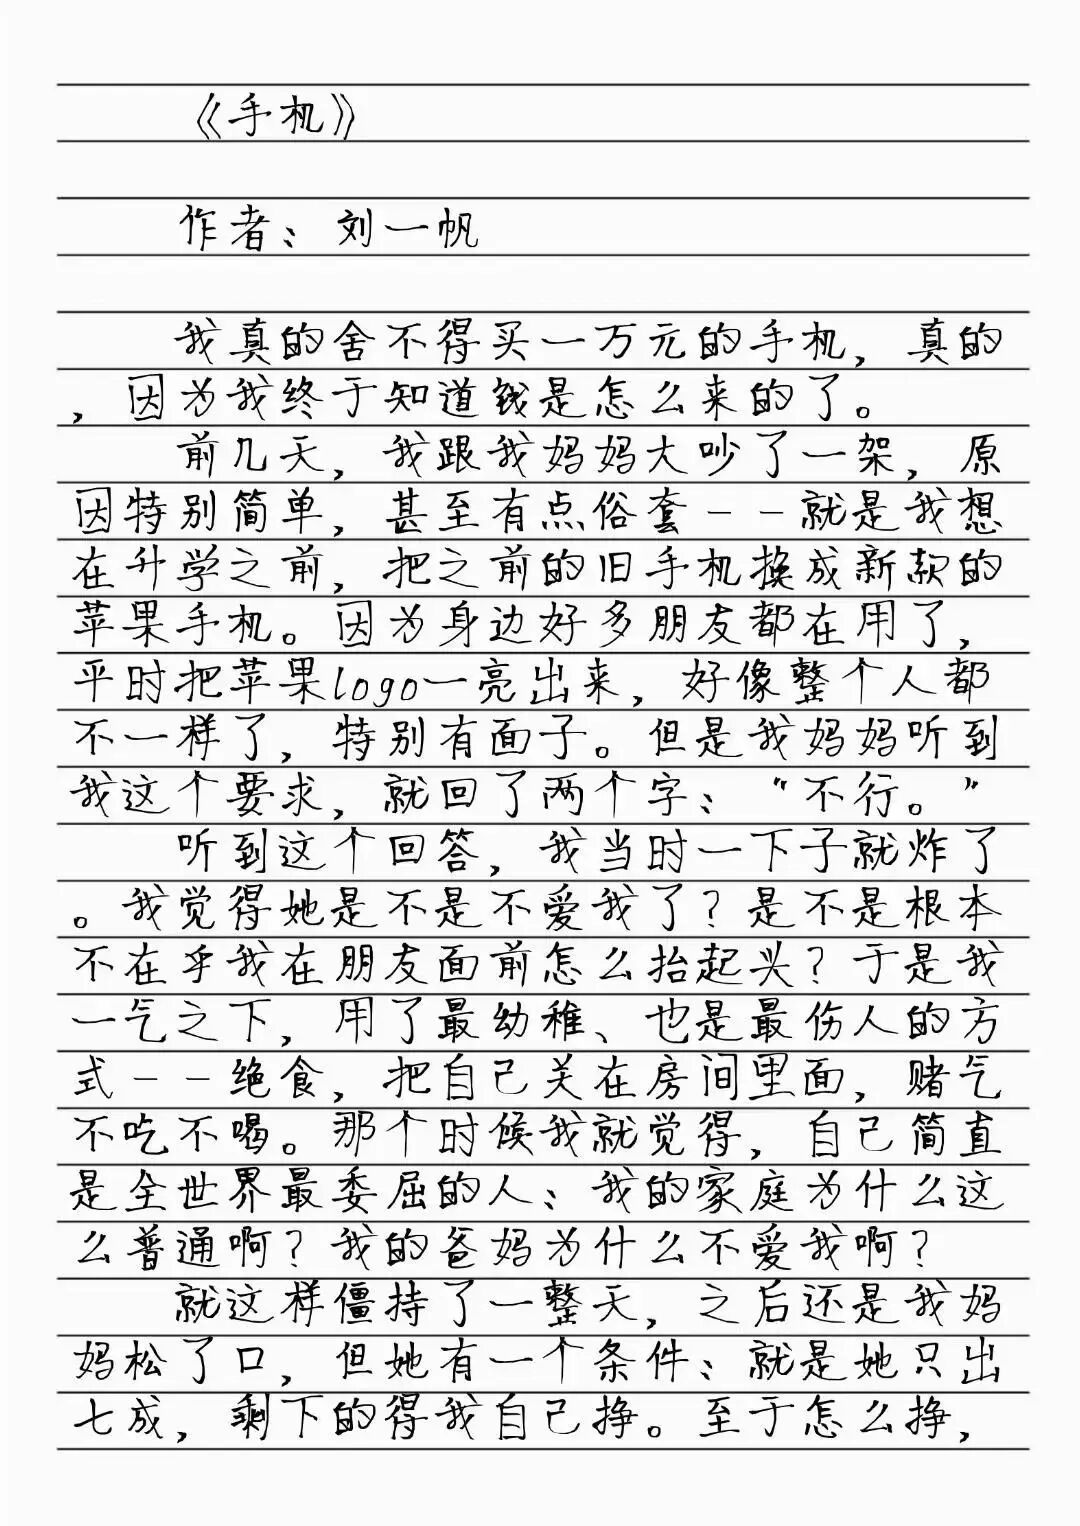 《手机》
作者：刘一帆
我真的舍不得买一万元的手机，真的
，因为我终于知道钱是怎么来的了。
前几天，我跟我妈妈大吵了一架，原
因特别简单，甚至有点俗套--就是我想
在升学之前，把之前的旧手机换成新款的
苹果手机。因为身边好多朋友都在用了，
平时把苹果logo一亮出来，好像整个人都
不一样了，特别有面子。但是我妈妈听到
我这个要求，就回了两个字：“不行。”
听到这个回答，我当时一下子就炸了
。我觉得她是不是不爱我了？是不是根本
不在乎我在朋友面前怎么抬起头？于是我
一气之下，用了最幼稚、也是最伤人的方
式--绝食，把自己关在房间里面，赌气
不吃不喝。那个时候我就觉得，自己简直
是全世界最委屈的人：我的家庭为什么这
么普通啊？我的爸妈为什么不爱我啊？
就这样僵持了一整天，之后还是我妈
妈松了口，但她有一个条件：就是她只出
七成，剩下的得我自己挣。至于怎么挣，